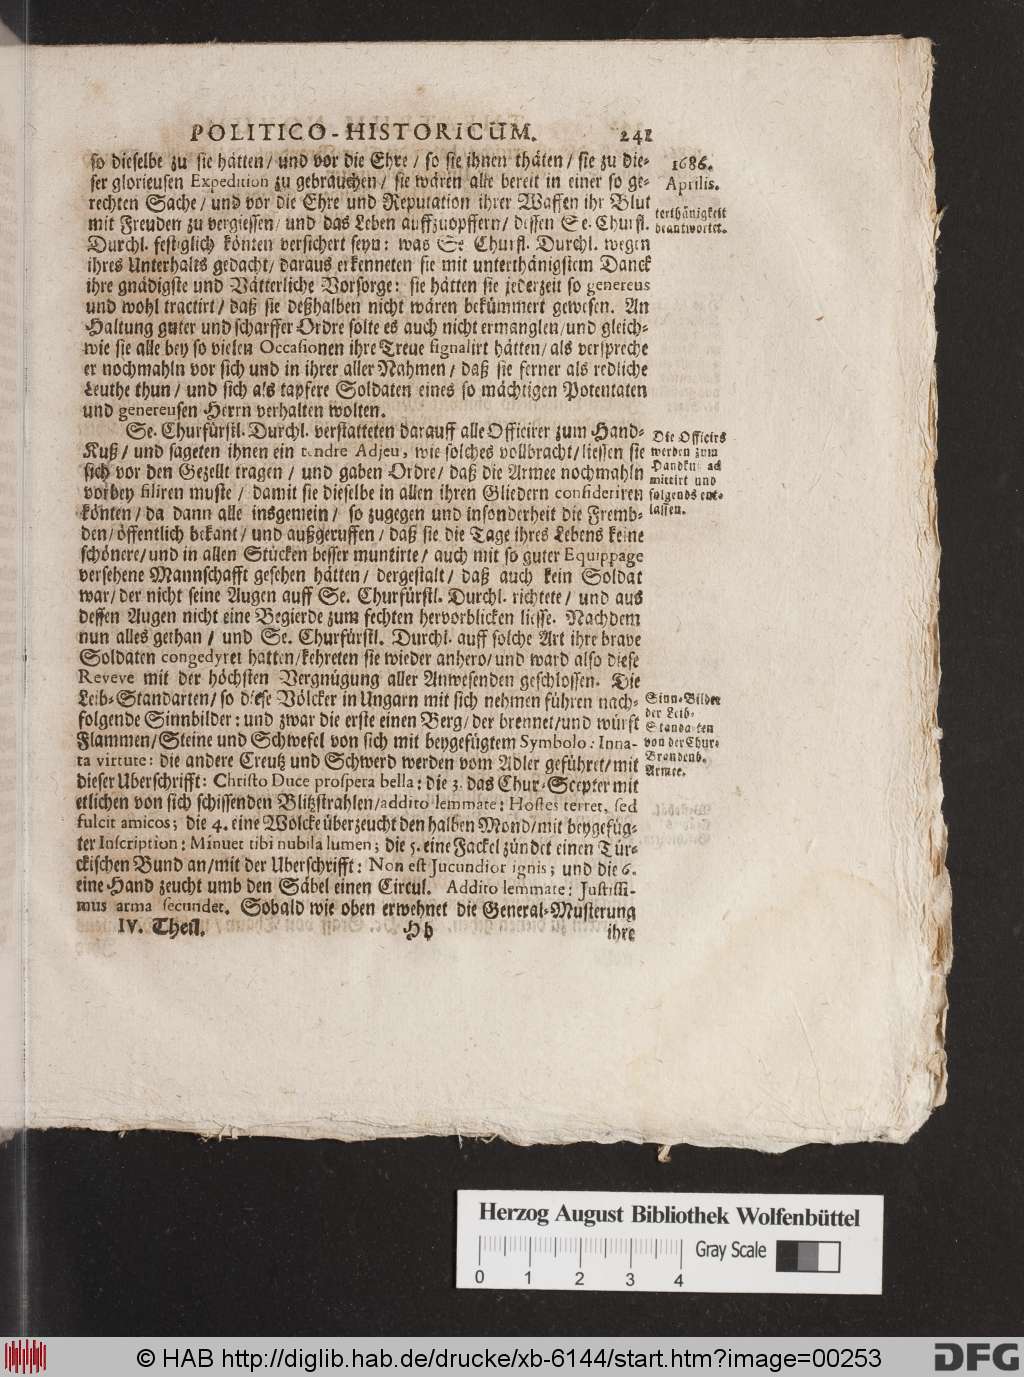 POLITICO-HISTORICUM. 241
so dieselbe zu sie hätten / und vor die Ehre / so sie ihnen thäten / sie zu die-
ser glorieusen Expedition zu gebrauchen / sie wären alle bereit in einer so ge-
rechten Sache / und vor die Ehre und Reputation ihrer Waffen ihr Blut
mit Freuden zu vergiessen / und das Leben auffzuopffern / dessen Se. Churfl.
Durchl. festiglich könten versichert seyn: was Se Churfl. Durchl. wegen
ihres Unterhalts gedacht / daraus erkenneten sie mit unterthänigstem Danck
ihre gnädigste und Vätterliche Vorsorge: sie hätten sie jederzeit so genereus
und wohl tractirt / daß sie deßhalben nicht wären bekümmert gewesen. An
Haltung guter und scharffer Ordre solte es auch nicht ermanglen / und gleich-
wie sie alle bey so vielen Occasionen ihre Treue signalirt hätten / als verspreche
er nochmahln vor sich und in ihrer aller Nahmen / daß sie ferner als redliche
Leuthe thun / und sich als tapfere Soldaten eines so mächtigen Potentaten
und genereusen Herrn verhalten wolten.
Se. Churfürstl. Durchl. verstatteten darauff alle Officirer zum Hand-
Kuß / und sageten ihnen ein tendre Adjeu, wie solches vollbracht / liessen sie
sich vor den Gezellt tragen / und gaben Ordre / daß die Armee nochmahln
vorbey filiren muste / damit sie dieselbe in allen ihren Gliedern consideriren
könten / da dann alle insgemein / so zugegen und insonderheit die Fremb-
den / öffentlich bekant / und außgeruffen / daß sie die Tage ihres Lebens keine
schönere / und in allen Stücken besser muntirte / auch mit so guter Equippage
versehene Mannschafft gesehen hätten / dergestalt / daß auch kein Soldat
war / der nicht seine Augen auff Se. Churfürstl. Durchl. richtete / und aus
dessen Augen nicht eine Begierde zum fechten hervorblicken liesse. Nachdem
nun alles gethan / und Se. Churfürstl. Durchl. auff solche Art ihre brave
Soldaten congedyret hatten / kehreten sie wieder anhero / und ward also diese
Reveve mit der höchsten Vergnügung aller Anwesenden geschlossen. Die
Leib-Standarten / so diese Völcker in Ungarn mit sich nehmen führen nach-
folgende Sinnbilder: und zwar die erste einen Berg / der brennet / und würft
Flammen / Steine und Schwefel von sich mit beygefügtem Symbolo: Inna-
ta virtute: die andere Creutz und Schwerd werden vom Adler geführet / mit
dieser Uberschrifft: Christo Duce prospera bella: die 3. das Chur-Scepter mit
etlichen von sich schissenden Blitzstrahlen / addito lemmate: Hostes terret, sed
fulcit amicos; die 4. eine Wolcke überzeucht den halben Mond / mit beygefüg-
ter Inscription: Minuet tibi nubila lumen; die 5. eine Fackel zündet einen Tür-
ckischen Bund an / mit der Uberschrifft: Non est Jucundior ignis; und die 6.
eine Hand zeucht umb den Säbel einen Circul. Addito lemmate: Justissi-
mus arma secundet. Sobald wie oben erwehnet die General-Musterung
IV. Theil. Hh ihre
1686.
Aprilis.
terthänigkeit
beantwortet.
Die Officirs
werden zum
Handkuß ad
mittirt und
folgends ent-
lassen.
Sinn-Bilder
der Leib-
Standarten
von der Chur-
Brandenb.
Armee.
Herzog August Bibliothek Wolfenbüttel
0 1 2 3 4 Gray Scale
© HAB http://diglib.hab.de/drucke/xb-6144/start.htm?image=00253
DFG